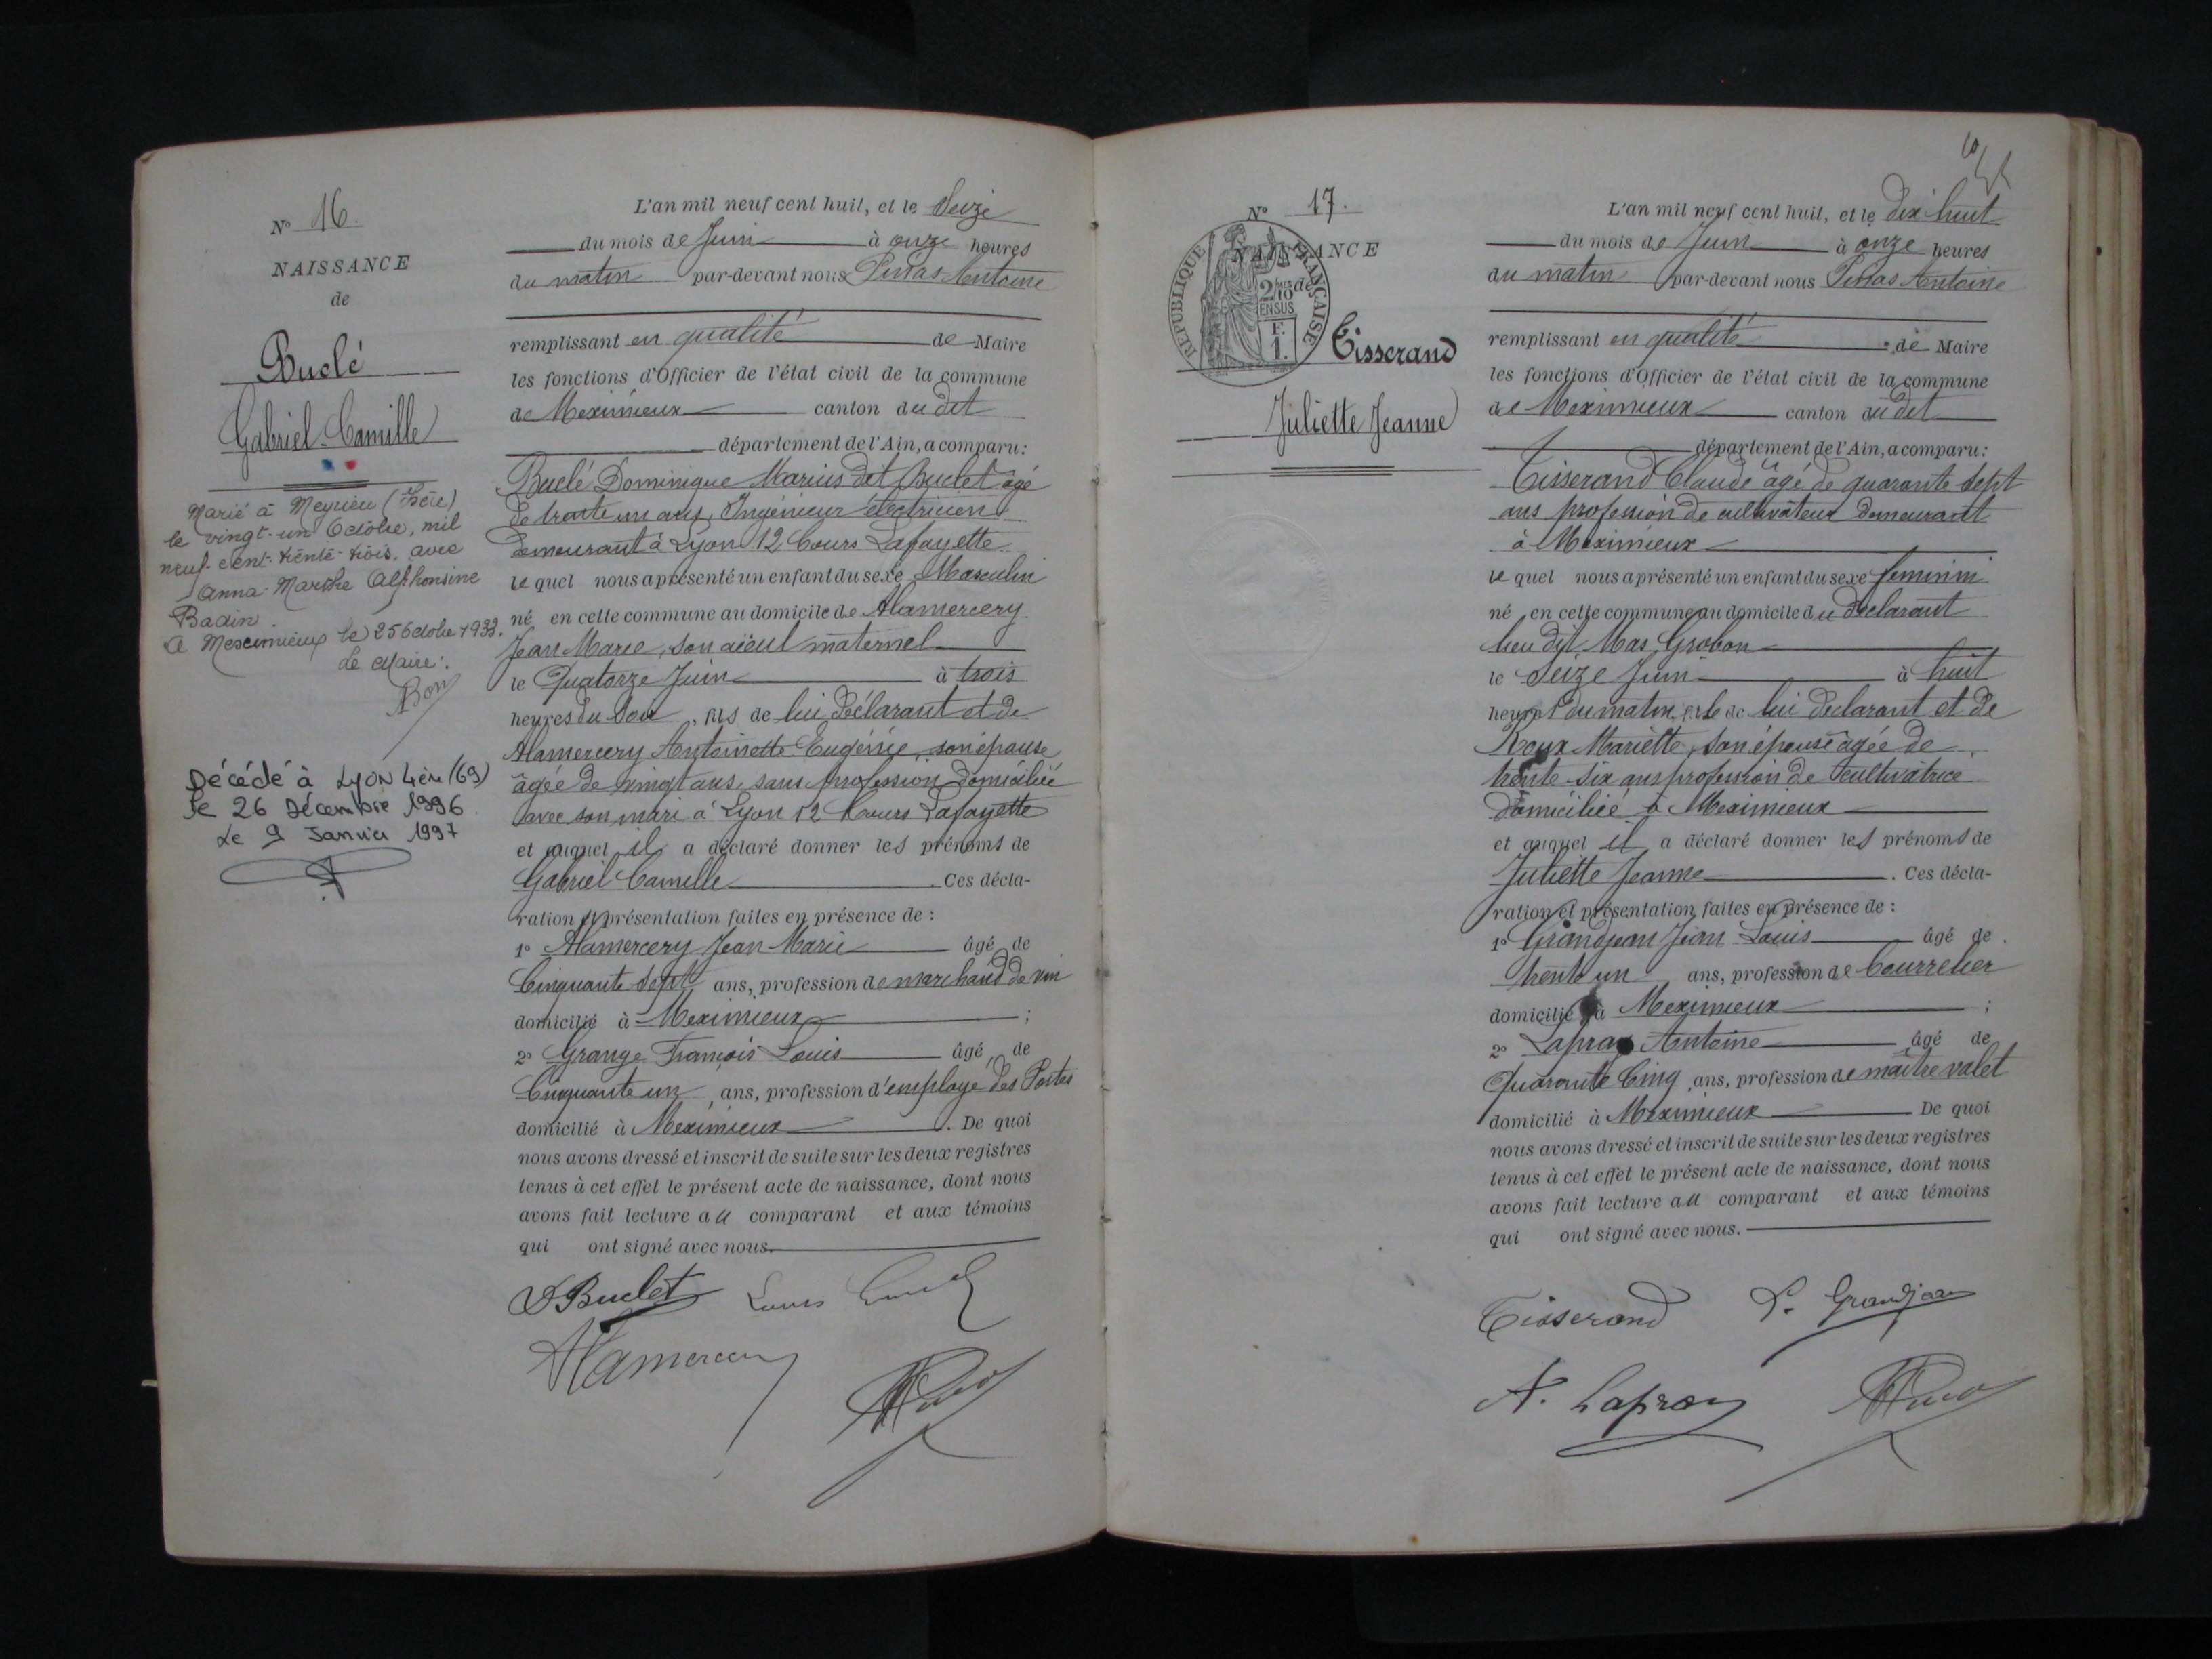 N° 16.
NAISSANCE
de
Buclé
Gabriel Camille
Marié à Meyrieu (Isère)
le vingt-un Octobre, mil
neuf-cent-trente-trois, avec
Anna-Marthe Alphonsine
Badin.
A Meximieux le 25 Octobre 1933.
Le Maire:
Décédé à Lyon 4ème (69)
le 26 Décembre 1996
Le 9 Janvier 1997
L'an mil neuf cent huit, et le Seize
du mois de Juin à onze heures
du matin par-devant nous Antoine
remplissant en qualité de Maire
les fonctions d'Officier de l'état civil de la commune
de Meximieux canton du dit
département de l'Ain, a comparu:
Buclé Dominique Marius dit Buclet âgé
de trente un ans, Ingénieur électricien
demeurant à Lyon 12 Cours Lafayette
lequel nous a présenté un enfant du sexe Masculin
né en cette commune au domicile de Alamercery
Jean Marie, son aïeul maternel
le Quatorze Juin à trois
heures du Soir, fils de lui déclarant et de
Alamercery Antoinette Eugénie, son épouse
âgée de vingt ans, sans profession domiciliée
avec son mari à Lyon 12 Cours Lafayette
et auquel il a déclaré donner les prénoms de
Gabriel Camille. Ces décla-
ration et présentation faites en présence de:
1° Alamercery Jean Marie âgé de
Cinquante sept ans, profession de marchand de vin
domicilié à Meximieux;
2° Grange François Louis âgé de
Cinquante un ans, profession d'employé des Postes
domicilié à Meximieux. De quoi
nous avons dressé et inscrit de suite sur les deux registres
tenus à cet effet le présent acte de naissance, dont nous
avons fait lecture au comparant et aux témoins
qui ont signé avec nous.
D Buclet Louis
Alamercery
N° 17.
NAISSANCE
de
RÉPUBLIQUE FRANÇAISE
2/10
EN SUS
F.
1.
Tisserand
Juliette Jeanne
L'an mil neuf cent huit, et le dix huit
du mois de Juin à onze heures
du matin par-devant nous Antoine
remplissant en qualité de Maire
les fonctions d'Officier de l'état civil de la commune
de Meximieux canton du dit
département de l'Ain, a comparu:
Tisserand Claude âgé de quarante sept
ans profession de cultivateur demeurant
à Meximieux
lequel nous a présenté un enfant du sexe feminin
né en cette commune au domicile du déclarant
lieu dit Mas Grobon
le Seize Juin à huit
heures du matin, fille de lui déclarant et de
Roux Mariette, son épouse âgée de
trente-six ans profession de cultivatrice
domiciliée à Meximieux
et auquel il a déclaré donner les prénoms de
Juliette Jeanne. Ces décla-
ration et présentation faites en présence de:
1° Grandjean Jean Louis âgé de
trente un ans, profession de bourrelier
domicilié à Meximieux;
2° Lapray Antoine âgé de
Quarante Cinq ans, profession de maître valet
domicilié à Meximieux De quoi
nous avons dressé et inscrit de suite sur les deux registres
tenus à cet effet le présent acte de naissance, dont nous
avons fait lecture au comparant et aux témoins
qui ont signé avec nous.
Tisserand L. Grandjean
A. Lapray